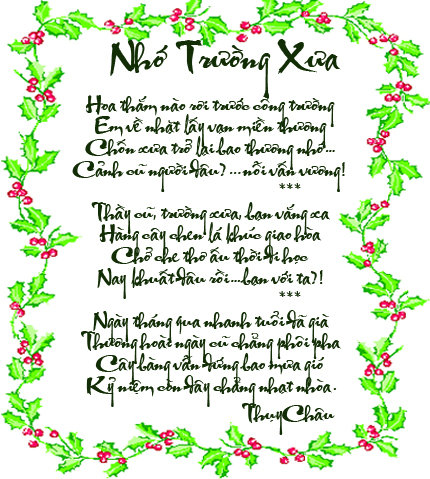 Nhớ Trường Xưa
Hoa thắm nào rơi trước cổng trường
Em về nhặt lấy vạn miền thương
Chốn xưa trở lại bao thương nhớ...
Cảnh cũ người đâu? ... nỗi vấn vương!
***
Thầy cũ, trường xưa, bạn vắng xa
Hàng cây chen lá khúc giao hòa
Chở che thơ ấu thời đi học
Nay khuất đâu rồi....bạn với ta?!
***
Ngày tháng qua nhanh tuổi đã già
Thương hoài ngày cũ chẳng phôi pha
Cây bàng vẫn đứng bao mưa gió
Kỷ niệm còn đây chẳng nhạt nhòa.
Thụy Châu